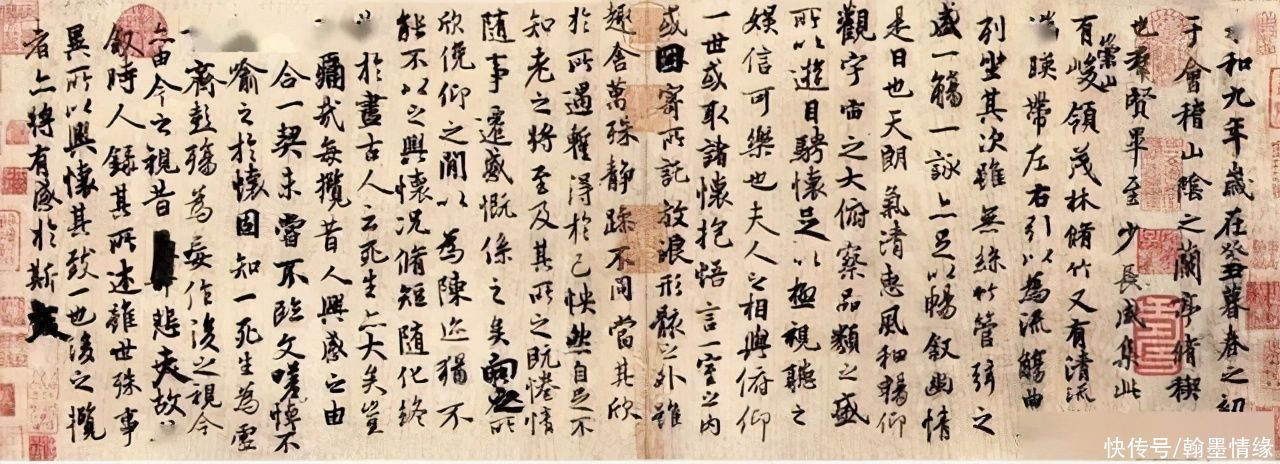 和九年歲在癸丑暮春之初
于會稽山陰之蘭亭脩稧
也羣賢畢至少長咸集此
有崇山峻領茂林脩竹又有清流
暎帶左右引以為流觴曲
列坐其次雖無絲竹管弦之
盛一觴一詠亦足以暢叙幽情
是日也天朗氣清惠風和暢仰
觀宇宙之大俯察品類之盛
所以遊目騁懷足以極視聽之
娛信可樂也夫人之相與俯仰
一世或取諸懷抱悟言一室之內
或因寄所託放浪形骸之外雖
趣舍萬殊靜躁不同當其欣
於所遇暫得於己怏然自足不
知老之將至及其所之既惓情
隨事遷感慨係之矣向之所
欣俛仰之閒以為陳迹猶不
能不以之興懷況脩短隨化終
於盡古人云死生亦大矣豈
痛哉每攬昔人興感之由
合一契未嘗不臨文嗟悼不
喻之於懷固知一死生為虛
齊彭殤為妄作後之視今
由今之視昔悲夫故
叙時人錄其所述雖世殊事
異所以興懷其致一也後之攬
者亦將有感於斯文
快传号/翰墨情缘